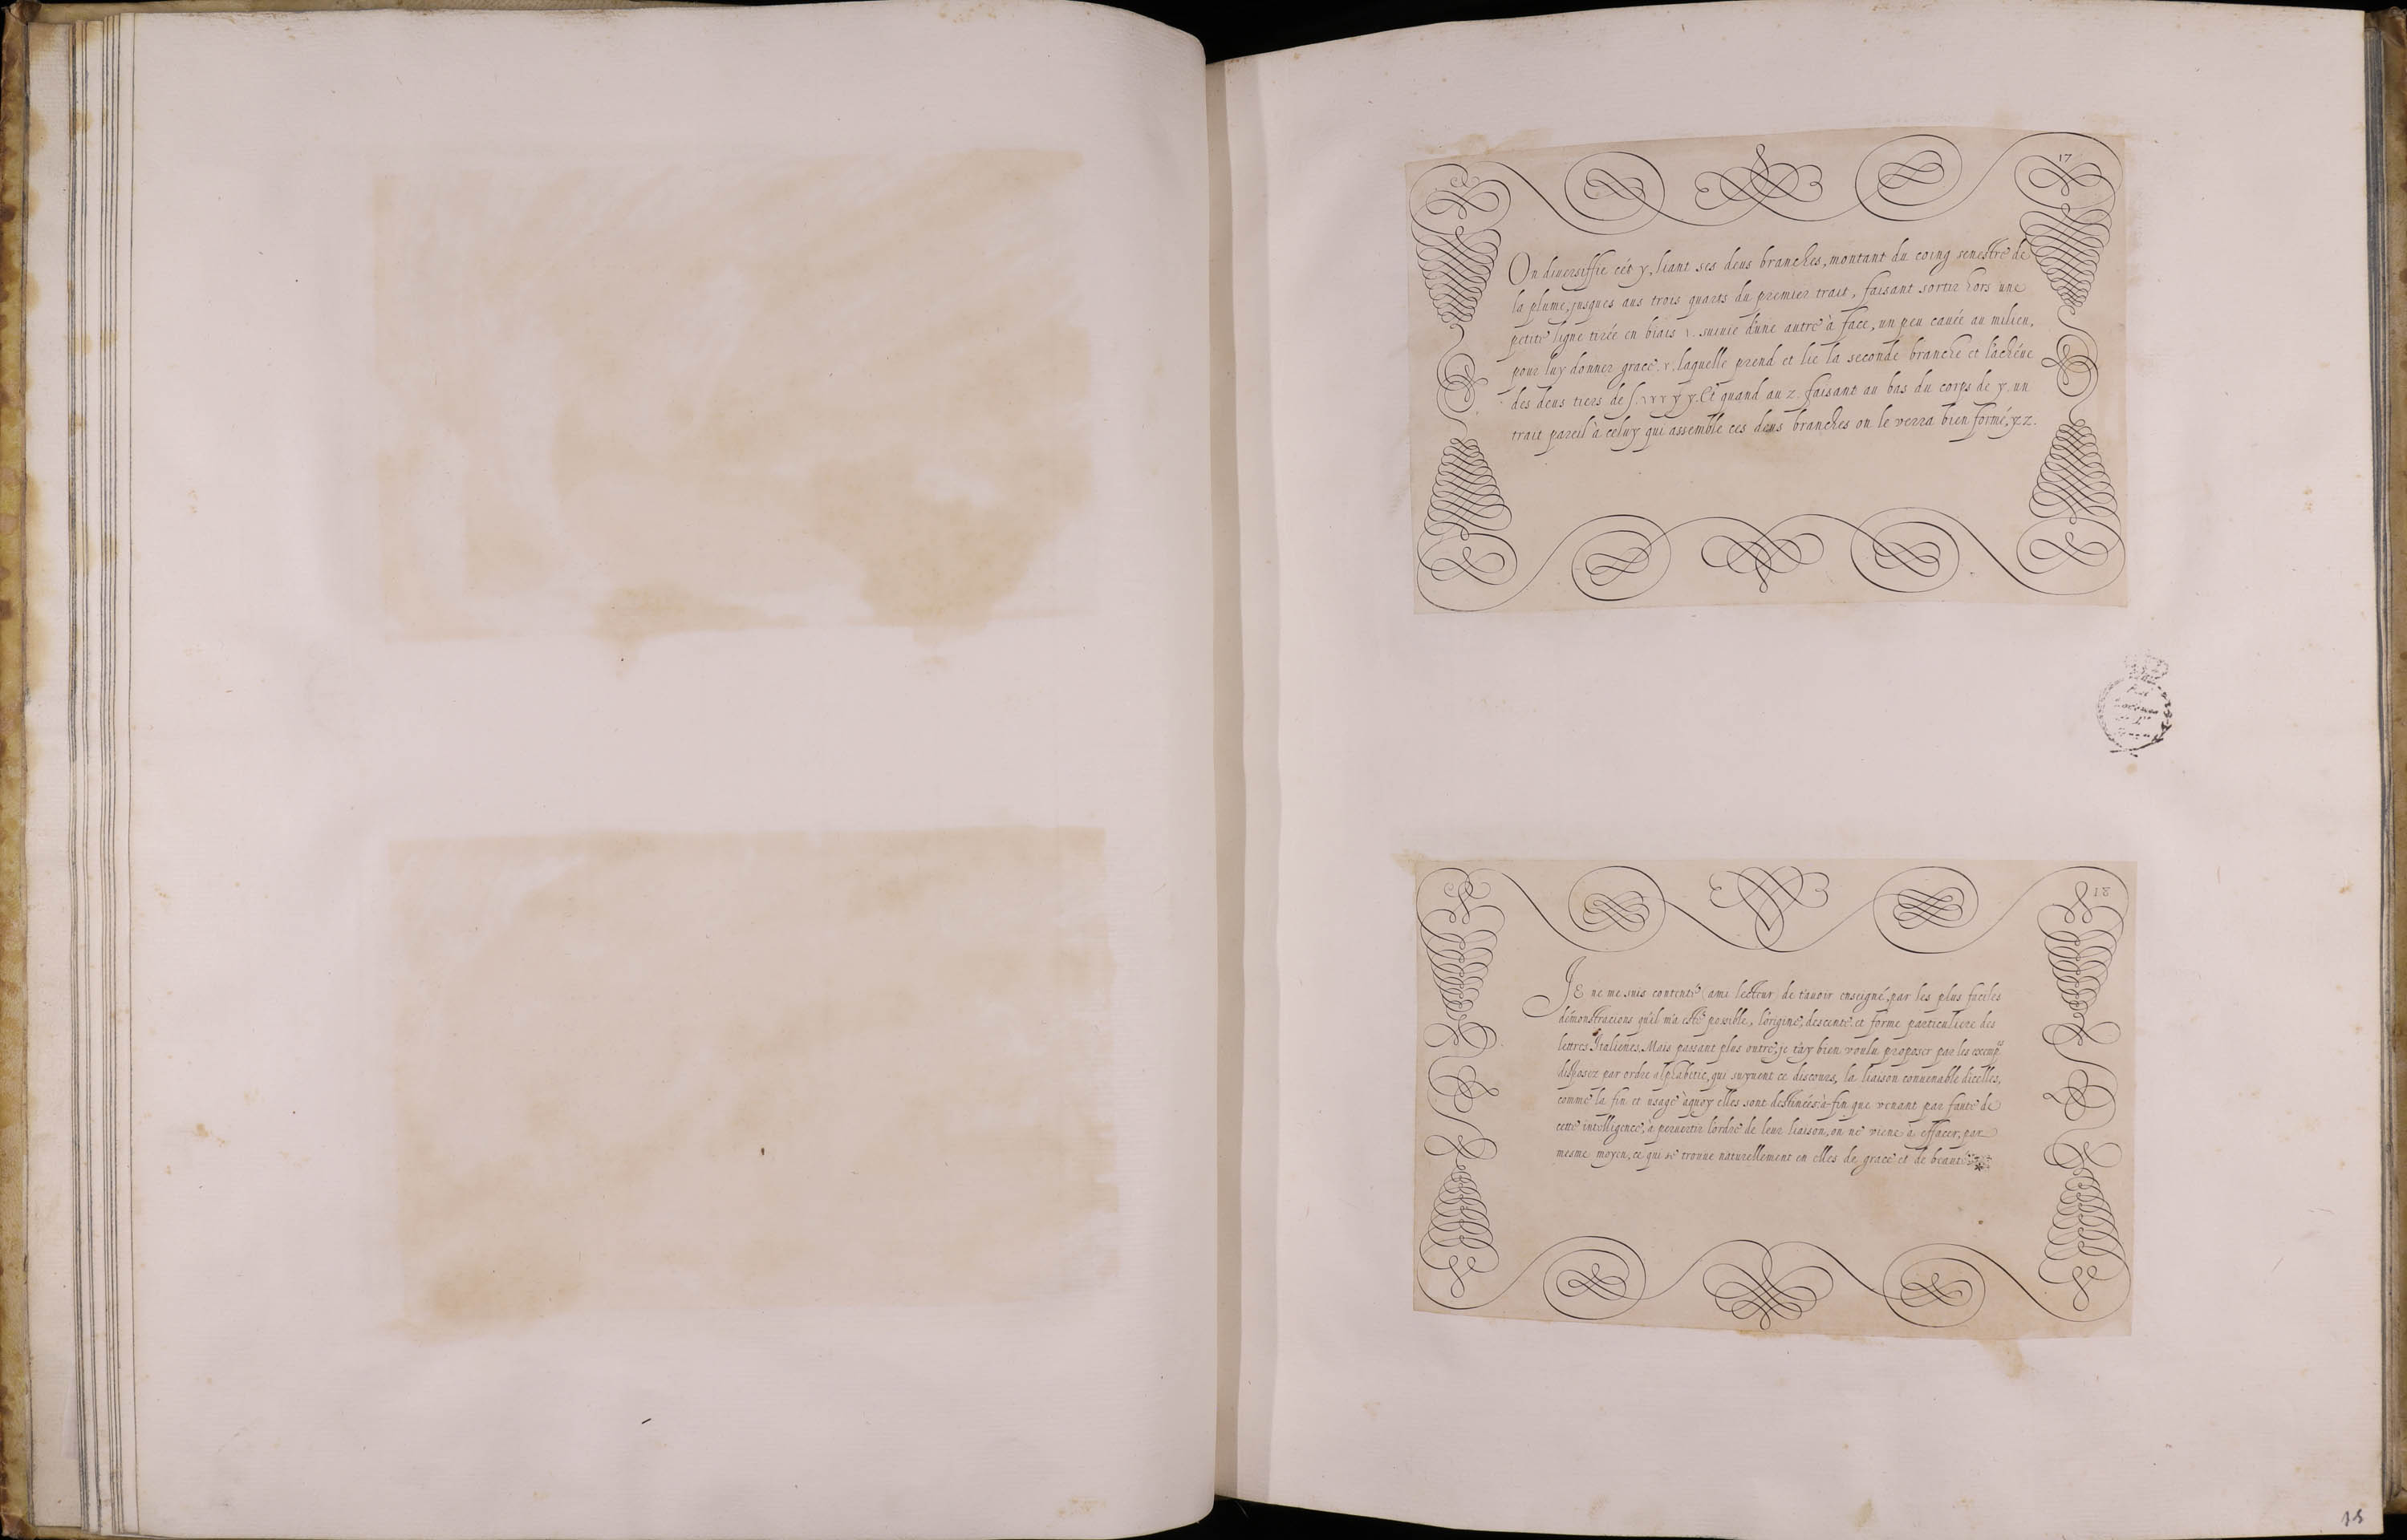 17
On diversiffie cét y, liant ses deus branches, montant du coing senestre de
la plume, jusques aus trois quarts du premier trait, faisant sortir hors une
petite ligne tirée en biais ı. suivie d'une autre à face, un peu cauée au milieu,
pour luy donner grace. r, laquelle prend et lie la seconde branche et l'achéue
des deus tiers de ſ. y y. Et quand au z. faisant au bas du corps de y. un
trait pareil à celuy qui assemble ces deus branches on le verra bien formé, y z.
18
JE ne me suis contenté (ami lecteur) de t'avoir enseigné, par les plus faciles
démonstracions qu'il m'a esté possible, l'origine, descente et forme particuliere des
lettres Italienes, Mais passant plus outre, je t'ay bien voulu proposer par les exemp
disposez par ordre alphabetic, qui suyvent ce discours, la liaison conuenable d'icelles,
comme la fin et usage àquoy elles sont destinées: à-fin que venant par faute de
cette intelligence, à peruertir l'ordre de leur liaison, on ne viene à effacer, par
mesme moyen, ce qui se trouue naturellement en elles de grace et de beauté
15